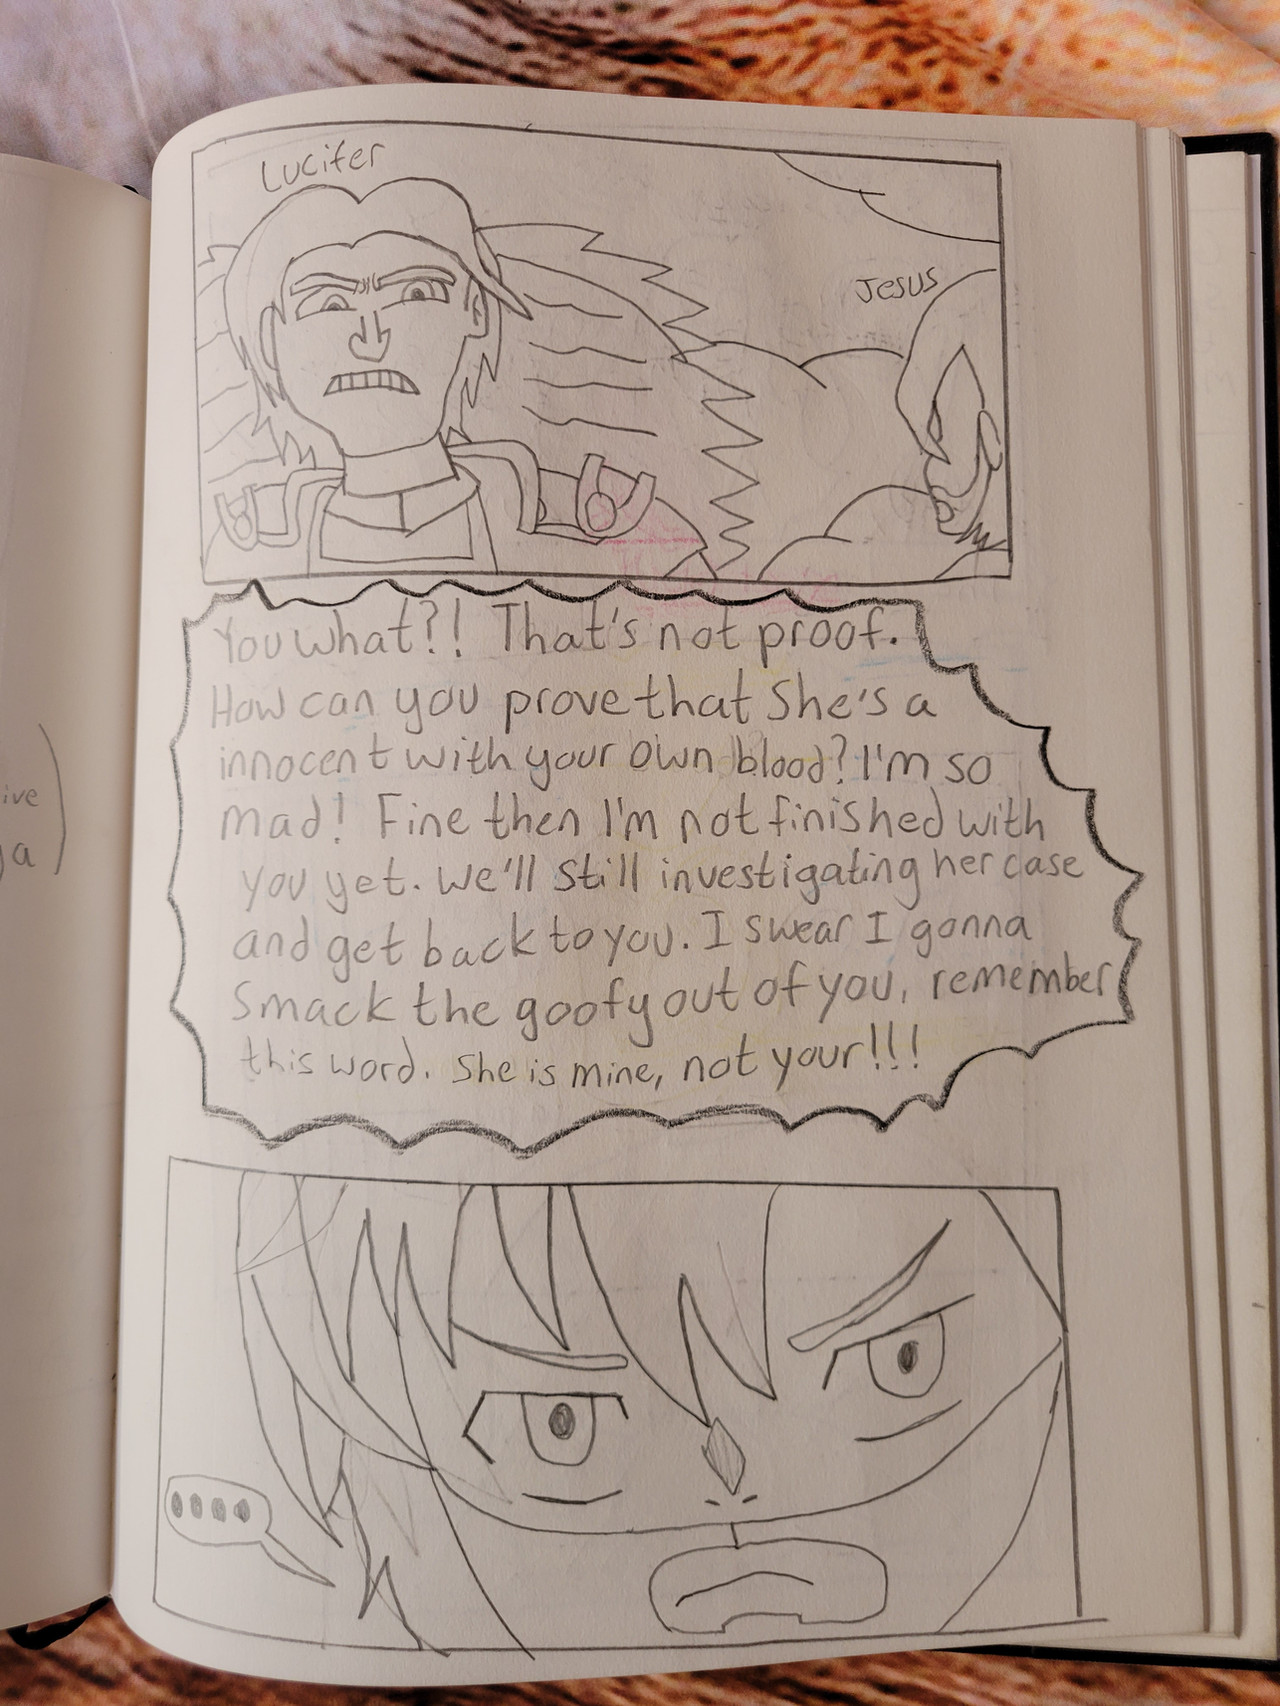 Lucifer
Jesus
You what?! That's not proof.
How can you prove that She's a
innocent with your own blood? I'm so
mad! Fine then I'm not finished with
you yet. We'll still investigating her case
and get back to you. I swear I gonna
Smack the goofy out of you, remember
this word. She is mine, not your!!!
ive